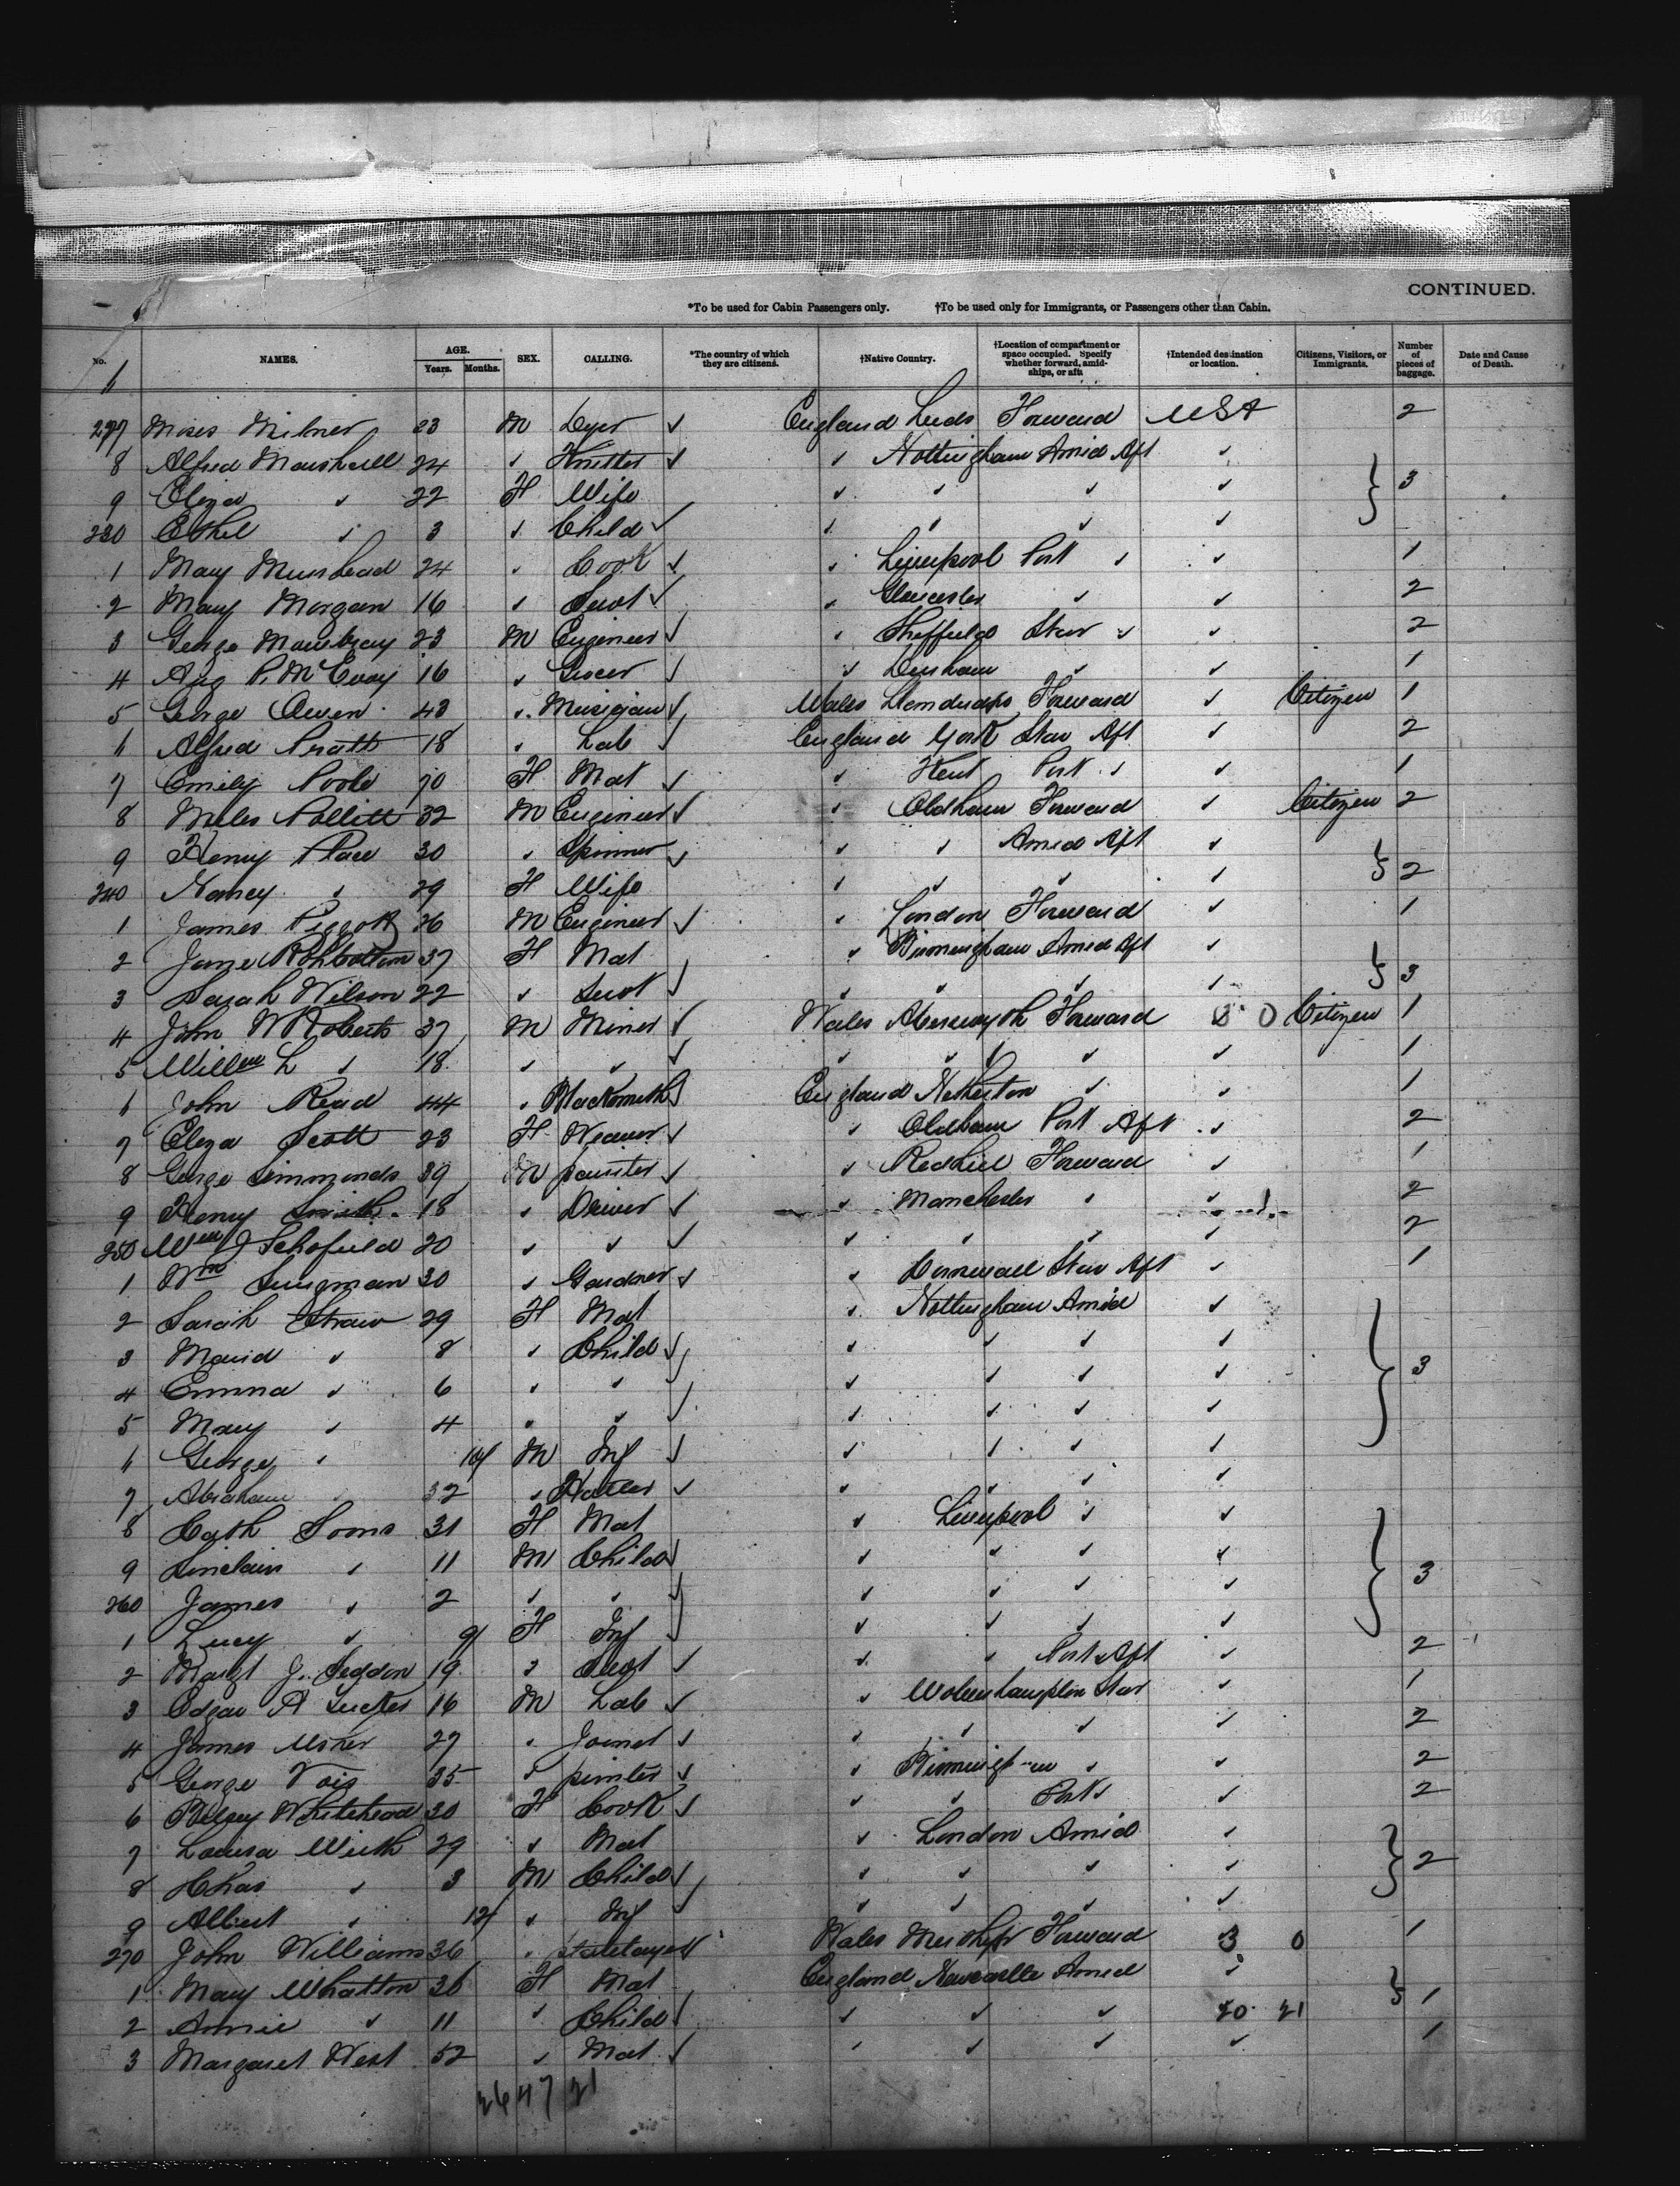 CONTINUED.
*To be used for Cabin Passengers only. †To be used only for Immigrants, or Passengers other than Cabin.
No. NAMES. AGE. Years. Months. SEX. CALLING. *The country of which they are citizens. †Native Country. †Location of compartment or space occupied. Specify whether forward, amidships, or aft. †Intended destination or location. Citizens, Visitors, or Immigrants. Number of pieces of baggage. Date and Cause of Death.
227 Moses Milner 23 M Dyer ✓ England Leeds Forward USA 2
8 Alfred Marshall 24 ✓ Knitter ✓ ✓ Nottingham Amid Aft ✓
9 Eliza ✓ 22 F Wife ✓ ✓ ✓ ✓ } 3
230 Ethel ✓ 3 ✓ Child ✓ ✓ ✓ ✓ ✓
1 Mary Muirhead 24 ✓ Cook ✓ ✓ Liverpool Port ✓ ✓ 1
2 Mary Morgan 16 ✓ Servt ✓ ✓ Gloucester ✓ ✓ 2
3 George Mowbray 23 M Engineer ✓ ✓ Sheffield Star ✓ ✓ 2
4 Aug P. McEvoy 16 ✓ Grocer ✓ ✓ Durham ✓ ✓ 1
5 George Owen 43 ✓ Musician ✓ Wales Forward ✓ Citizen 1
6 Alfred Pratt 18 ✓ Lab ✓ England York Star Aft ✓ 2
7 Emily Poole 70 F Mat ✓ ✓ Kent Port ✓ ✓ 1
8 Miles Pollitt 32 M Engineer ✓ ✓ Oldham Forward ✓ Citizen 2
9 Henry Place 30 ✓ Spinner ✓ ✓ ✓ Amid Aft ✓
240 Nancy ✓ 29 F Wife ✓ ✓ ✓ ✓ } 2
1 James Piggott 26 M Engineer ✓ ✓ London Forward ✓ 1
2 Jane Rohbottom 37 F Mat ✓ Birmingham Amid Aft ✓
3 Sarah Wilson 22 ✓ Servt ✓ ✓ ✓ ✓ ✓ } 3
4 John W Roberts 37 M Miner ✓ Wales Forward 0 Citizen 1
5 Willm L ✓ 18 ✓ ✓ ✓ ✓ ✓ ✓ ✓ 1
6 John Read 44 ✓ Blacksmith England Netherton ✓ ✓ 1
7 Eliza Scott 23 F Weaver ✓ ✓ Oldham Port Aft ✓ 2
8 George Simmonds 39 M painter ✓ ✓ Redhill Forward ✓ 1
9 Henry Smith 18 ✓ Driver ✓ ✓ Manchester ✓ ✓ 2
250 Wm J Schofield 20 ✓ ✓ ✓ ✓ ✓ ✓ ✓ 2
1 Wm 30 ✓ Gardner ✓ ✓ Cornwall Star Aft ✓ 1
2 Sarah Straw 29 F Mat ✓ Nottingham Amid ✓
3 Maud ✓ 8 ✓ Child ✓ ✓ ✓ ✓ ✓ } 3
4 Emma ✓ 6 ✓ ✓ ✓ ✓ ✓ ✓
5 Mary ✓ 4 ✓ ✓ ✓ ✓ ✓ ✓ ✓
6 George ✓ 10/ M Inf ✓ ✓ ✓ ✓ ✓
7 Abraham 32 ✓ Hatter ✓ ✓ ✓ ✓ ✓
8 Cath Soons 31 F Mat ✓ Liverpool ✓ ✓
9 Sinclair ✓ 11 M Child ✓ ✓ ✓ ✓ } 3
260 James ✓ 2 ✓ ✓ ✓ ✓ ✓ ✓
1 Lucy ✓ 9/ F Inf ✓ ✓ ✓ ✓
2 Margt J. Seddon 19 ✓ Servt ✓ ✓ ✓ Port Aft ✓ 2
3 Edgar A 16 M Lab ✓ ✓ Wolverhampton Star ✓ 1
4 James Usher 27 ✓ Joiner ✓ ✓ ✓ ✓ ✓ 2
5 George 35 ✓ printer ✓ ✓ Birmingham ✓ ✓ 2
6 Betsey Whitehead 30 F Cook ✓ ✓ ✓ Port ✓ ✓ 2
7 Louisa 29 ✓ Mat ✓ London Amid ✓
8 Chas ✓ 3 M Child ✓ ✓ ✓ ✓ ✓ } 2
9 Albert ✓ ✓ Inf ✓ ✓ ✓ ✓
270 John Williams 36 ✓ Wales Merthyr Forward 3 0 1
1 Mary Whatton 36 F Mat England Newcastle Amid ✓
2 Annie ✓ 11 ✓ Child ✓ ✓ ✓ 20 21 } 1
3 Margaret West 52 ✓ Mat ✓ ✓ ✓ ✓ ✓ 1
26 47 21